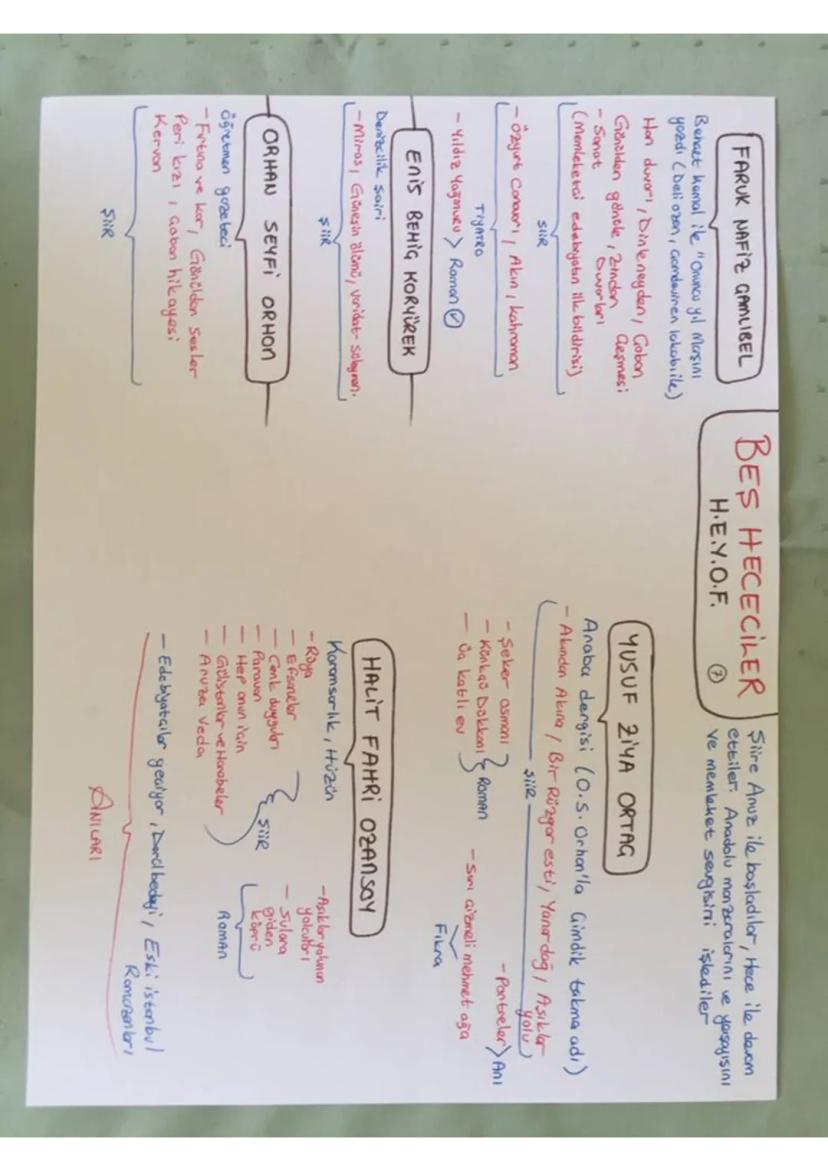 BEŞ HECECİLER
H.E.Y.O.F. 7
Şiire Aruz ile başladılar, Hece ile devam
ettiler. Anadolu manzaralarını ve yaşayışını
ve memleket sevgisini işlediler
FARUK NAFİZ ÇAMLIBEL
Behçet Kemal ile "Onuncu yıl Marşını
yazdı (Deli ozan, Çamdeviren lakabı ile)
Han duvarı, Dinle neyden, Çoban Çeşmesi
Gönülden gönüle, Zindan Duvarları
- Sanat
(Memleketçi edebiyatın ilk bildirisi)
ŞİİR
- Özyurt Canavarı, Akın, Kahraman
TİYATRO
- Yıldız Yağmuru > Roman
ENİS BEHİÇ KORYÜREK
Denizcilik şairi
- Miras, Güneşin ölümü, Varidat-ı Süleyman.
ŞİİR
ORHAN SEYFİ ORHON
Öğretmen gazeteci
- Fırtına ve kar, Gönülden Sesler
Peri kızı, Çoban hikayesi
Kervan
ŞİİR
YUSUF ZİYA ORTAÇ
Akbaba dergisi (O.S. Orhon'la Çimdik takma adı)
- Akından Akına / Bir Rüzgar esti / Yanardağ / Aşıklar yolu
ŞİİR
- Şeker osmanı
- Kürkçü Dükkanı
- Üç katlı ev
Roman
- Portreler > Anı
- Sarı çizmeli mehmet ağa
Fıkra
HALİT FAHRİ OZANSOY
Karamsarlık, Hüzün
- Rüya
- Efsaneler
- Cenk duyguları
- Paravan
- Hep onun için
- Gülistanlar ve Harabeler
- Aruza Veda
ŞİİR
- Aşıklar yolunun yolcuları
- Sulara giden köprü
ROMAN
- Edebiyatçılar geçiyor, Darülbedayi, Eski istanbul
Ramazanları
ANILARI